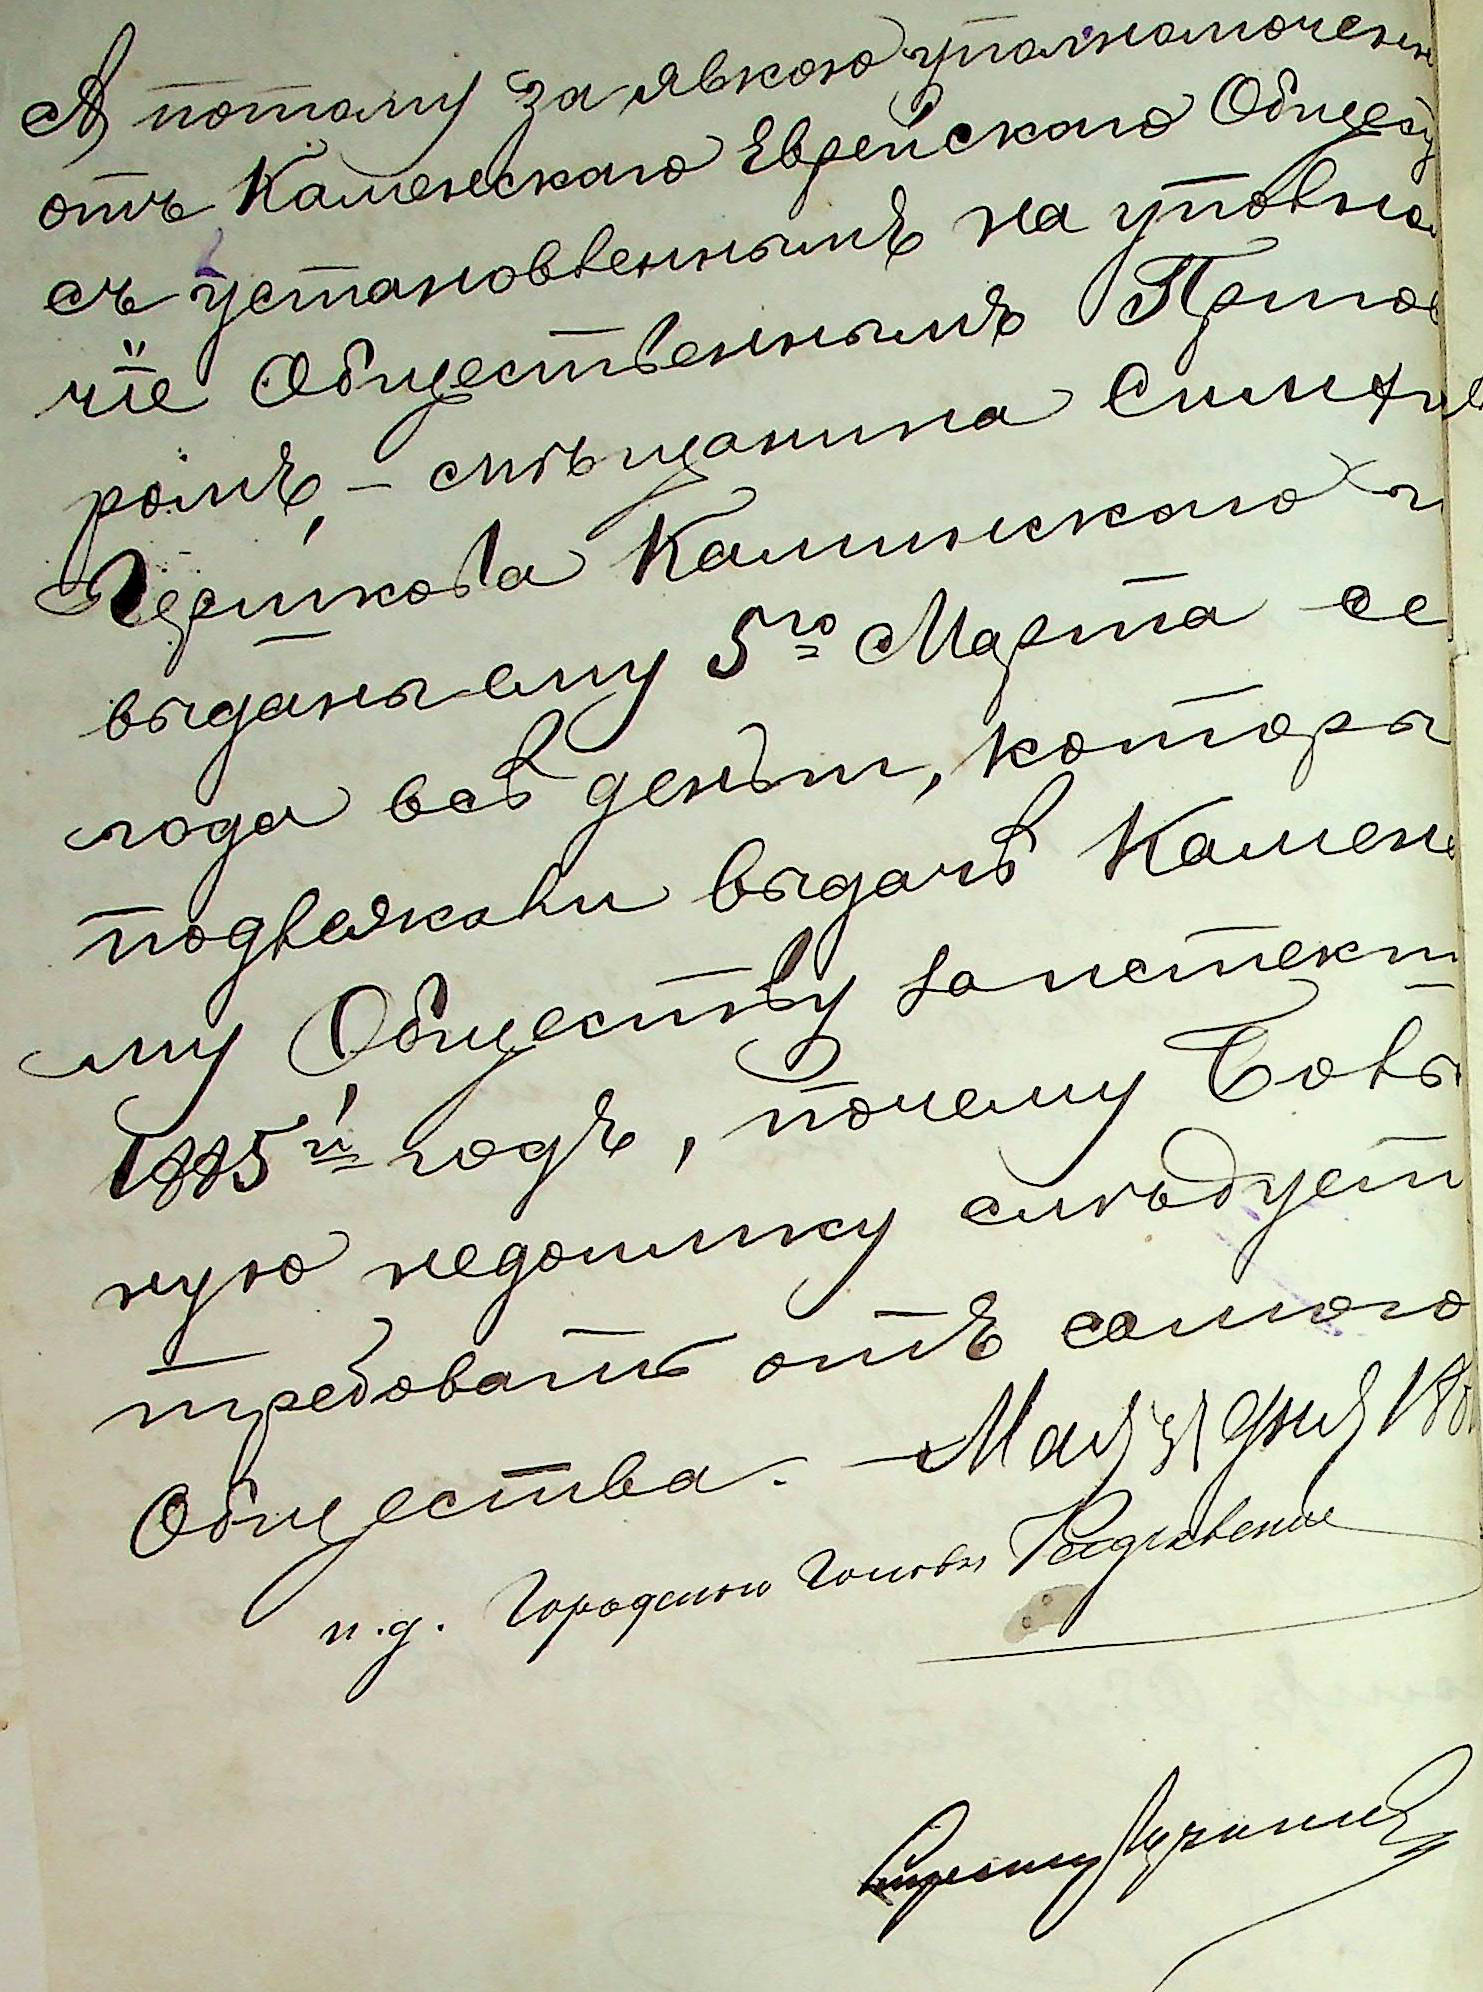 А потому за явкою уполномоченн
отъ Каменскаго Еврейскаго Общест
съ установленнымъ на уполно
чіе Общественнымъ Приго
ромъ, – мѣщанина
Гершкова Каминскаго
выданы ему 5го Марта се
года всѣ деньги, которы
подлежали выдачѣ Камен
му Обществу за истекш
1885й годъ, почему
ную недоимку слѣдует
требовать отъ самого
Общества. – Мая 31 дня 188
и. д. Городского Головы